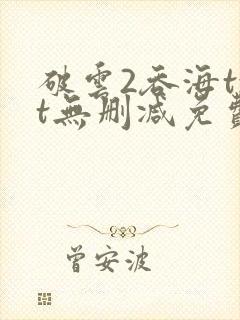 破雲2吞海t
t無刪減免費
曾安波